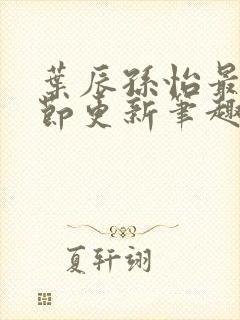 葉辰孫怡最
節更新筆趣
夏轩翊